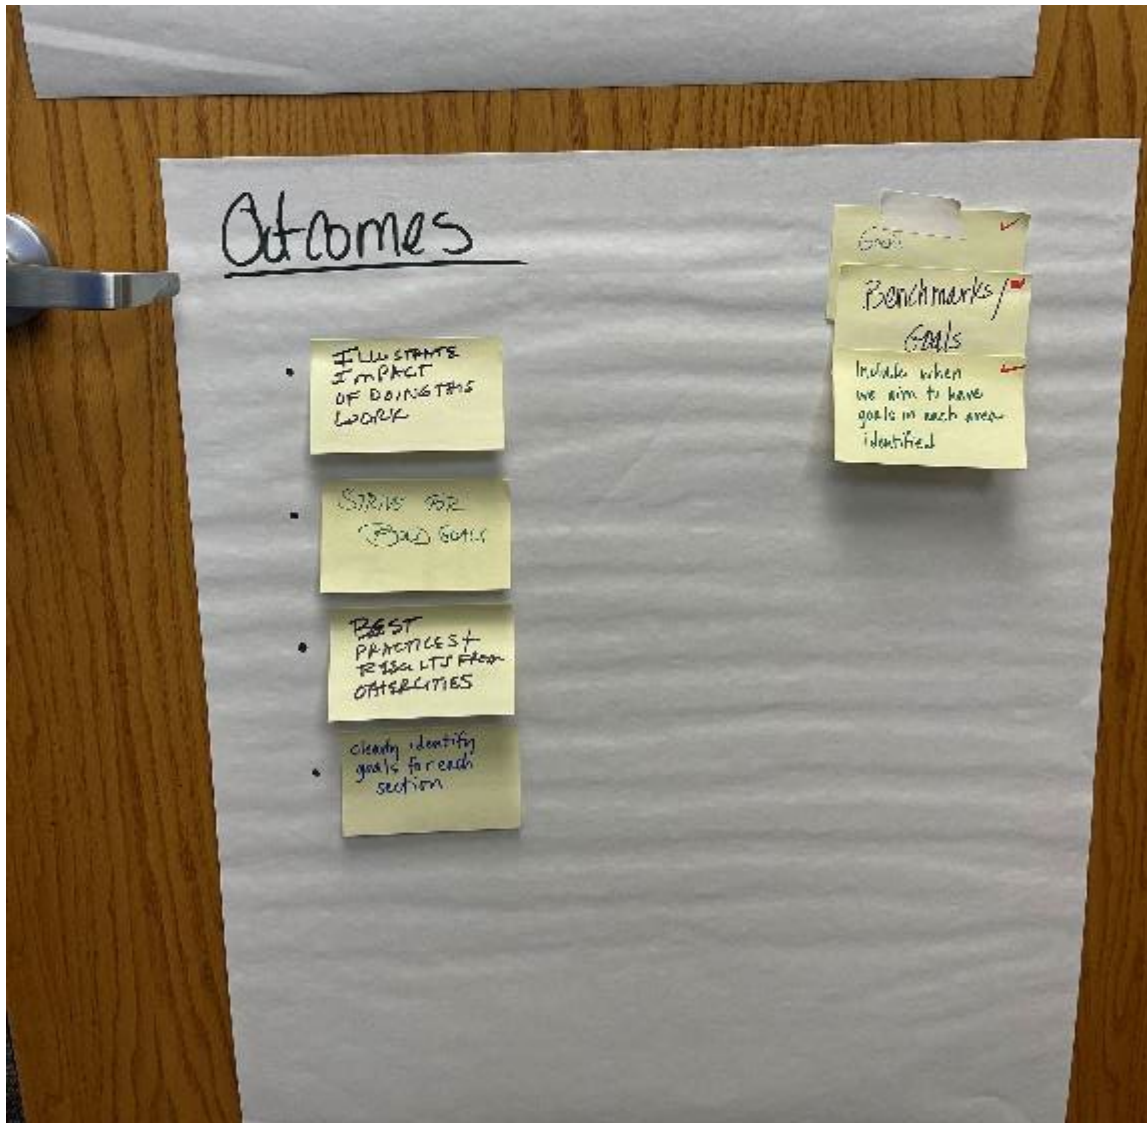 Outcomes
ILLUSTRATE
IMPACT
OF DOING THIS
WORK
STRIVE FOR
BOLD GOALS
BEST
PRACTICES +
RESULTS FROM
OTHER CITIES
clearly identify
goals for each
section
Goals
Benchmarks/
Goals
Include when
we aim to have
goals in each area
identified